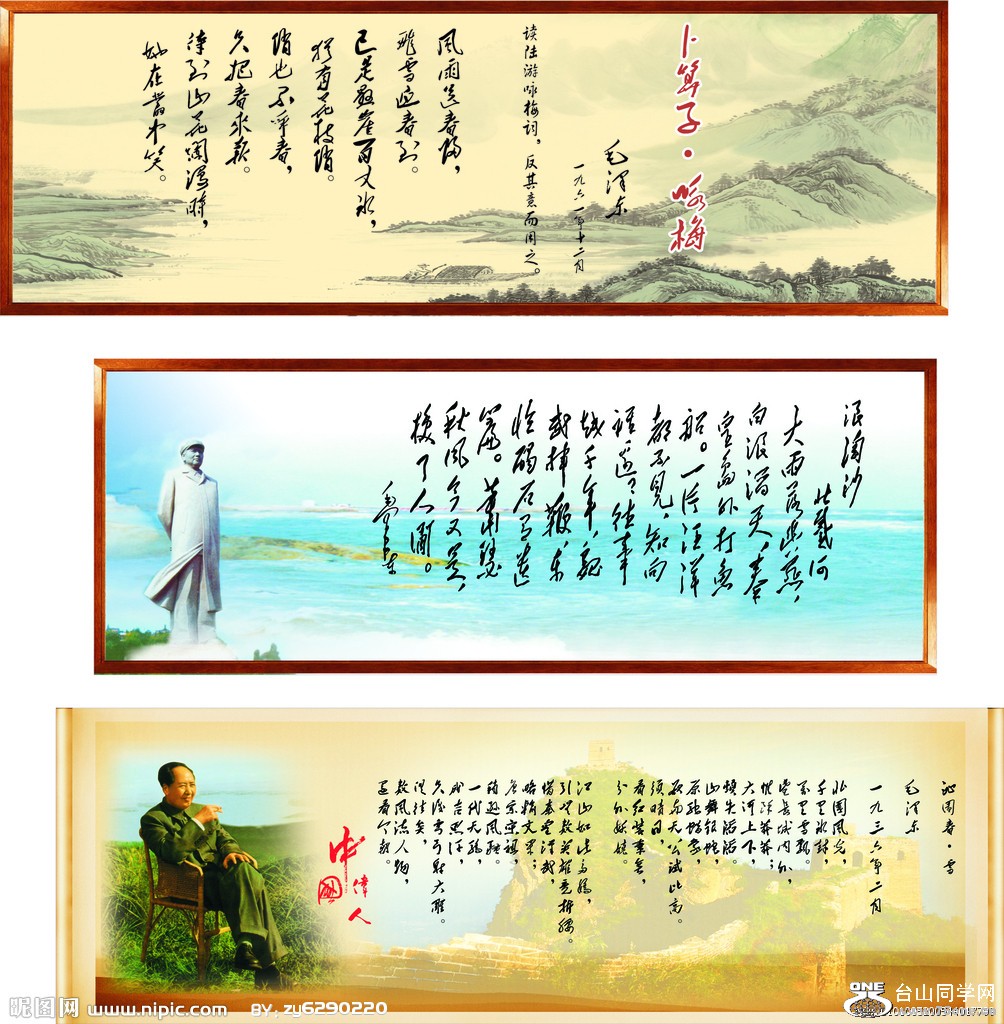 卜算子·咏梅
毛泽东
一九六一年十二月
读陆游咏梅词，反其意而用之。
风雨送春归，
飞雪迎春到。
已是悬崖百丈冰，
犹有花枝俏。
俏也不争春，
只把春来报。
待到山花烂漫时，
她在丛中笑。
浪淘沙
北戴河
大雨落幽燕，
白浪滔天，秦
皇岛外打鱼
船。一片汪洋
都不见，知向
谁边？往事
越千年，魏
武挥鞭，东
临碣石有遗
篇。萧瑟
秋风今又是，
换了人间。
毛泽东
沁园春·雪
毛泽东
一九三六年二月
北国风光，
千里冰封，
万里雪飘。
望长城内外，
惟余莽莽；
大河上下，
顿失滔滔。
山舞银蛇，
原驰蜡象，
欲与天公试比高。
须晴日，
看红装素裹，
分外妖娆。
江山如此多娇，
引无数英雄竞折腰。
惜秦皇汉武，
略输文采；
唐宗宋祖，
稍逊风骚。
一代天骄，
成吉思汗，
只识弯弓射大雕。
俱往矣，
数风流人物，
还看今朝。
中國
偉人
昵图网 www.nipic.com BY: zy6290220
ONE
台山同学网